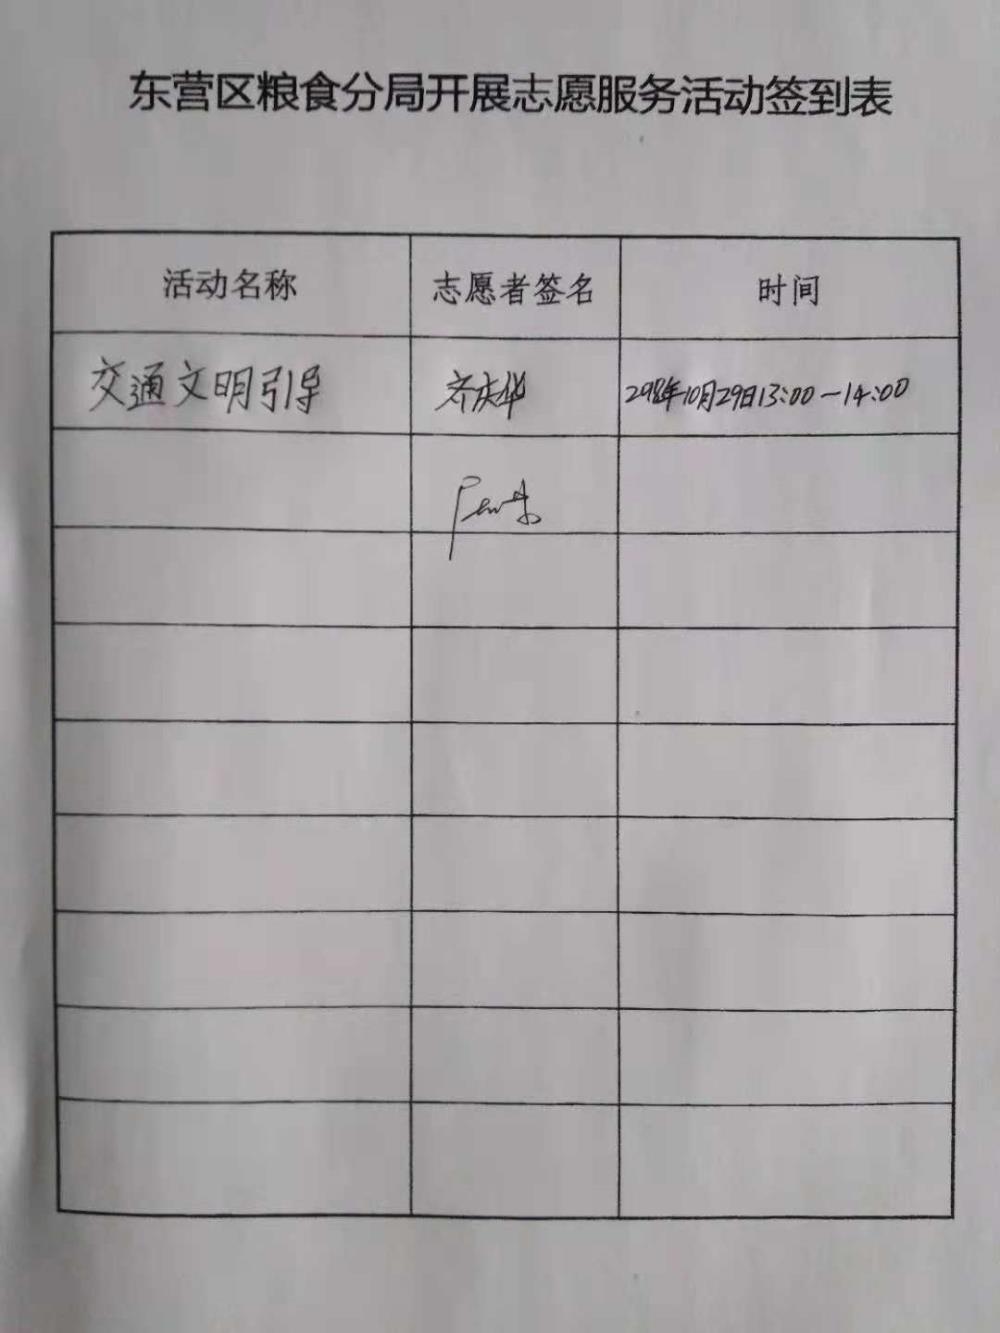 东营区粮食分局开展志愿服务活动签到表
活动名称 志愿者签名 时间
交通文明引导 齐庆华 10月29日13:00-14:00